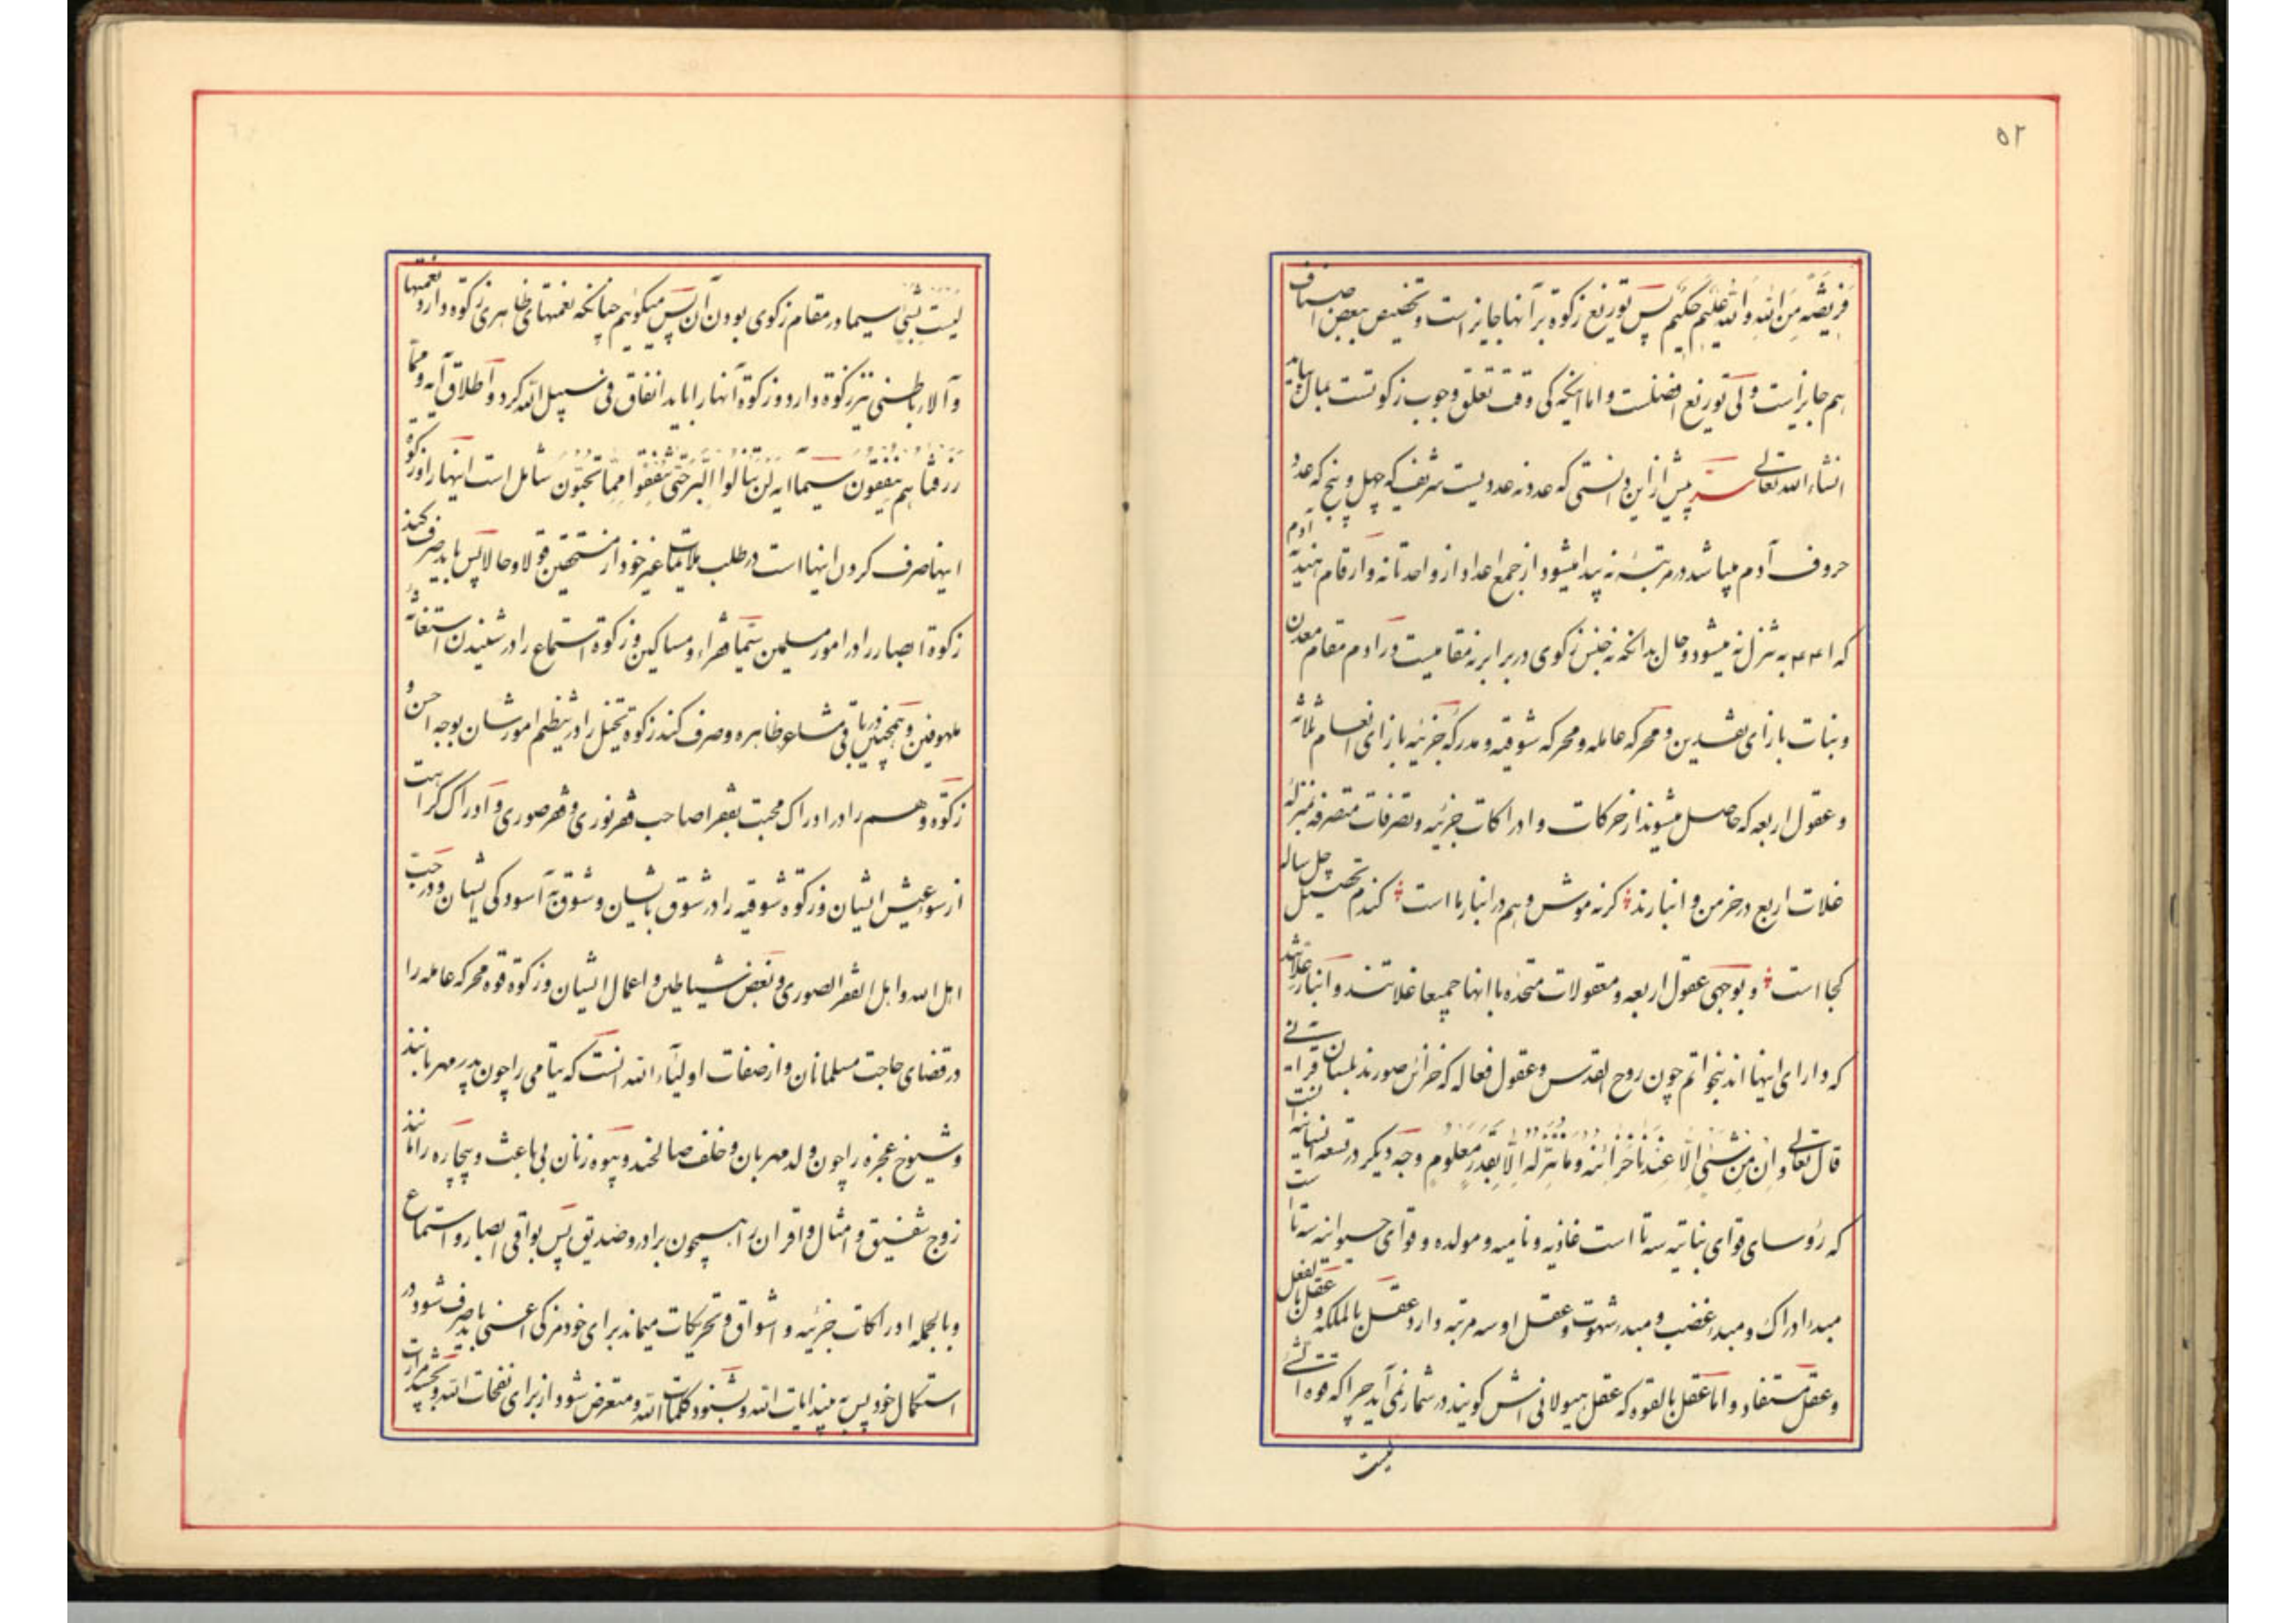 ۵۲
فَریضَةً مِنَ اللهِ وَاللهُ عَلیمٌ حَکیمٌ پس توزیع زکوة بر آنها جایز است و تخصیص ببعض اصناف
هم جایز است ولی توزیع افضلست و اما اینکه کی وقت تعلق وجوب زکوتست بمال بیاید
انشاء الله تعالی پیش از این دانستی که عدد نه عددیست شریف که چهل و پنج که عدد
حروف آدم میباشد در مرتبهٔ نه پیدا میشود از جمع اعداد از واحد تا نه و ارقام هندیه آدم
که ۱۴۴ به تنزل نه میشود و حال بدانکه نه جنس زکوی در برابر نه مقامیست در آدم مقام معدن
و نبات بازای نقدین و محرکه عامله و محرکه شوقیه و مدرکهٔ جزئیه بازای انعام ثلاثه
و عقول اربعه که حاصل میشوند از حرکات و ادراکات جزئیه و تصرفات متصرفه بمنزلهٔ
غلات اربع در خرمن و انبارند کرنه موش و هم در انبار ما است کندم تحصیل چل ساله
کجا است و بوجهی عقول اربعه و معقولات متحده با انها جمیعا غلاتند و انبار غلا شد
که دارای اینها اند بنحو اتم چون روح القدس و عقول فعاله که خزائن صورند بلسان قرانی
قال تعالی و اِن مِن شَیءٍ اِلّا عِندَنا خَزائِنُه و ما نُنَزِّلُه اِلّا بِقَدَرٍ مَعلومٍ وجه دیکر در تسعه انسانیه انست
که رؤسای قوای نباتیه سه تا است غاذیه و نامیه و مولده و قوای حیوانیه سه تا است
مبدء ادراک و مبدء غضب و مبدء شهوت و عقل او سه مرتبه دارد عقل بالملکه و عقل بالفعل
و عقل مستفاد و اما عقل بالقوه که عقل هیولانی اش کویند در شمار نمی آید چرا که قوه الشئ
لیست
لیست بشئ سیما در مقام زکوی بودن آن پس میکوئیم چنانکه نعمتهای ظاهری زکوة دارد نعمتها
و آلاء باطنی نیز زکوة دارد و زکوة آنها را باید انفاق فی سبیل الله کرد و اطلاق آیه و مما
رزقناهم ینفقون سیما ایه لن تنالوا البر حتی تنفقوا مما تحبون شامل است اینها را و زکوة
اینها صرف کردن اینها است در طلب ملایمات غیر خود از مستحقین قولا و حالا پس باید صرف کند
زکوة ابصار را در امور مسلمین سیما فقراء و مساکین و زکوة استماع را در شنیدن استغاثهٔ
ملهوفین و همچنین در باقی مشاعر ظاهره و صرف کند زکوة تخیل را در تنظیم امورشان بوجه احسن و
زکوة وهم را در ادراک محبت بفقرا صاحب فقر نوری و فقر صوری و ادراک کراهت
از سوء عیش ایشان و زکوة شوقیه را در شوق بایشان و شوق به آسودکی ایشان و در حب
اهل الله و اهل الفقر الصوری و بغض شیاطین و اعمال ایشان و زکوة قوه محرکه عامله را
در قضای حاجت مسلمانان و از صفات اولیآء الله انست که یتامی را چون پدر مهربانند
و شیوخ عجزه را چون ولد مهربان و خلف صالحند و بیوه زنان بی باعث و بیچاره را مانند
زوج شفیق و امثال و اقران را همچون برادر و صدیق پس بواقی ابصار و استماع
و بالجمله ادراکات جزئیه و اشواق و تحریکات میماند برای خود مزکی اعنی باید صرف شود در
استکمال خود پس به بیند ایات الله و بشنود کلمات الله و متعرض شود از برای نفحات الله و بچشد